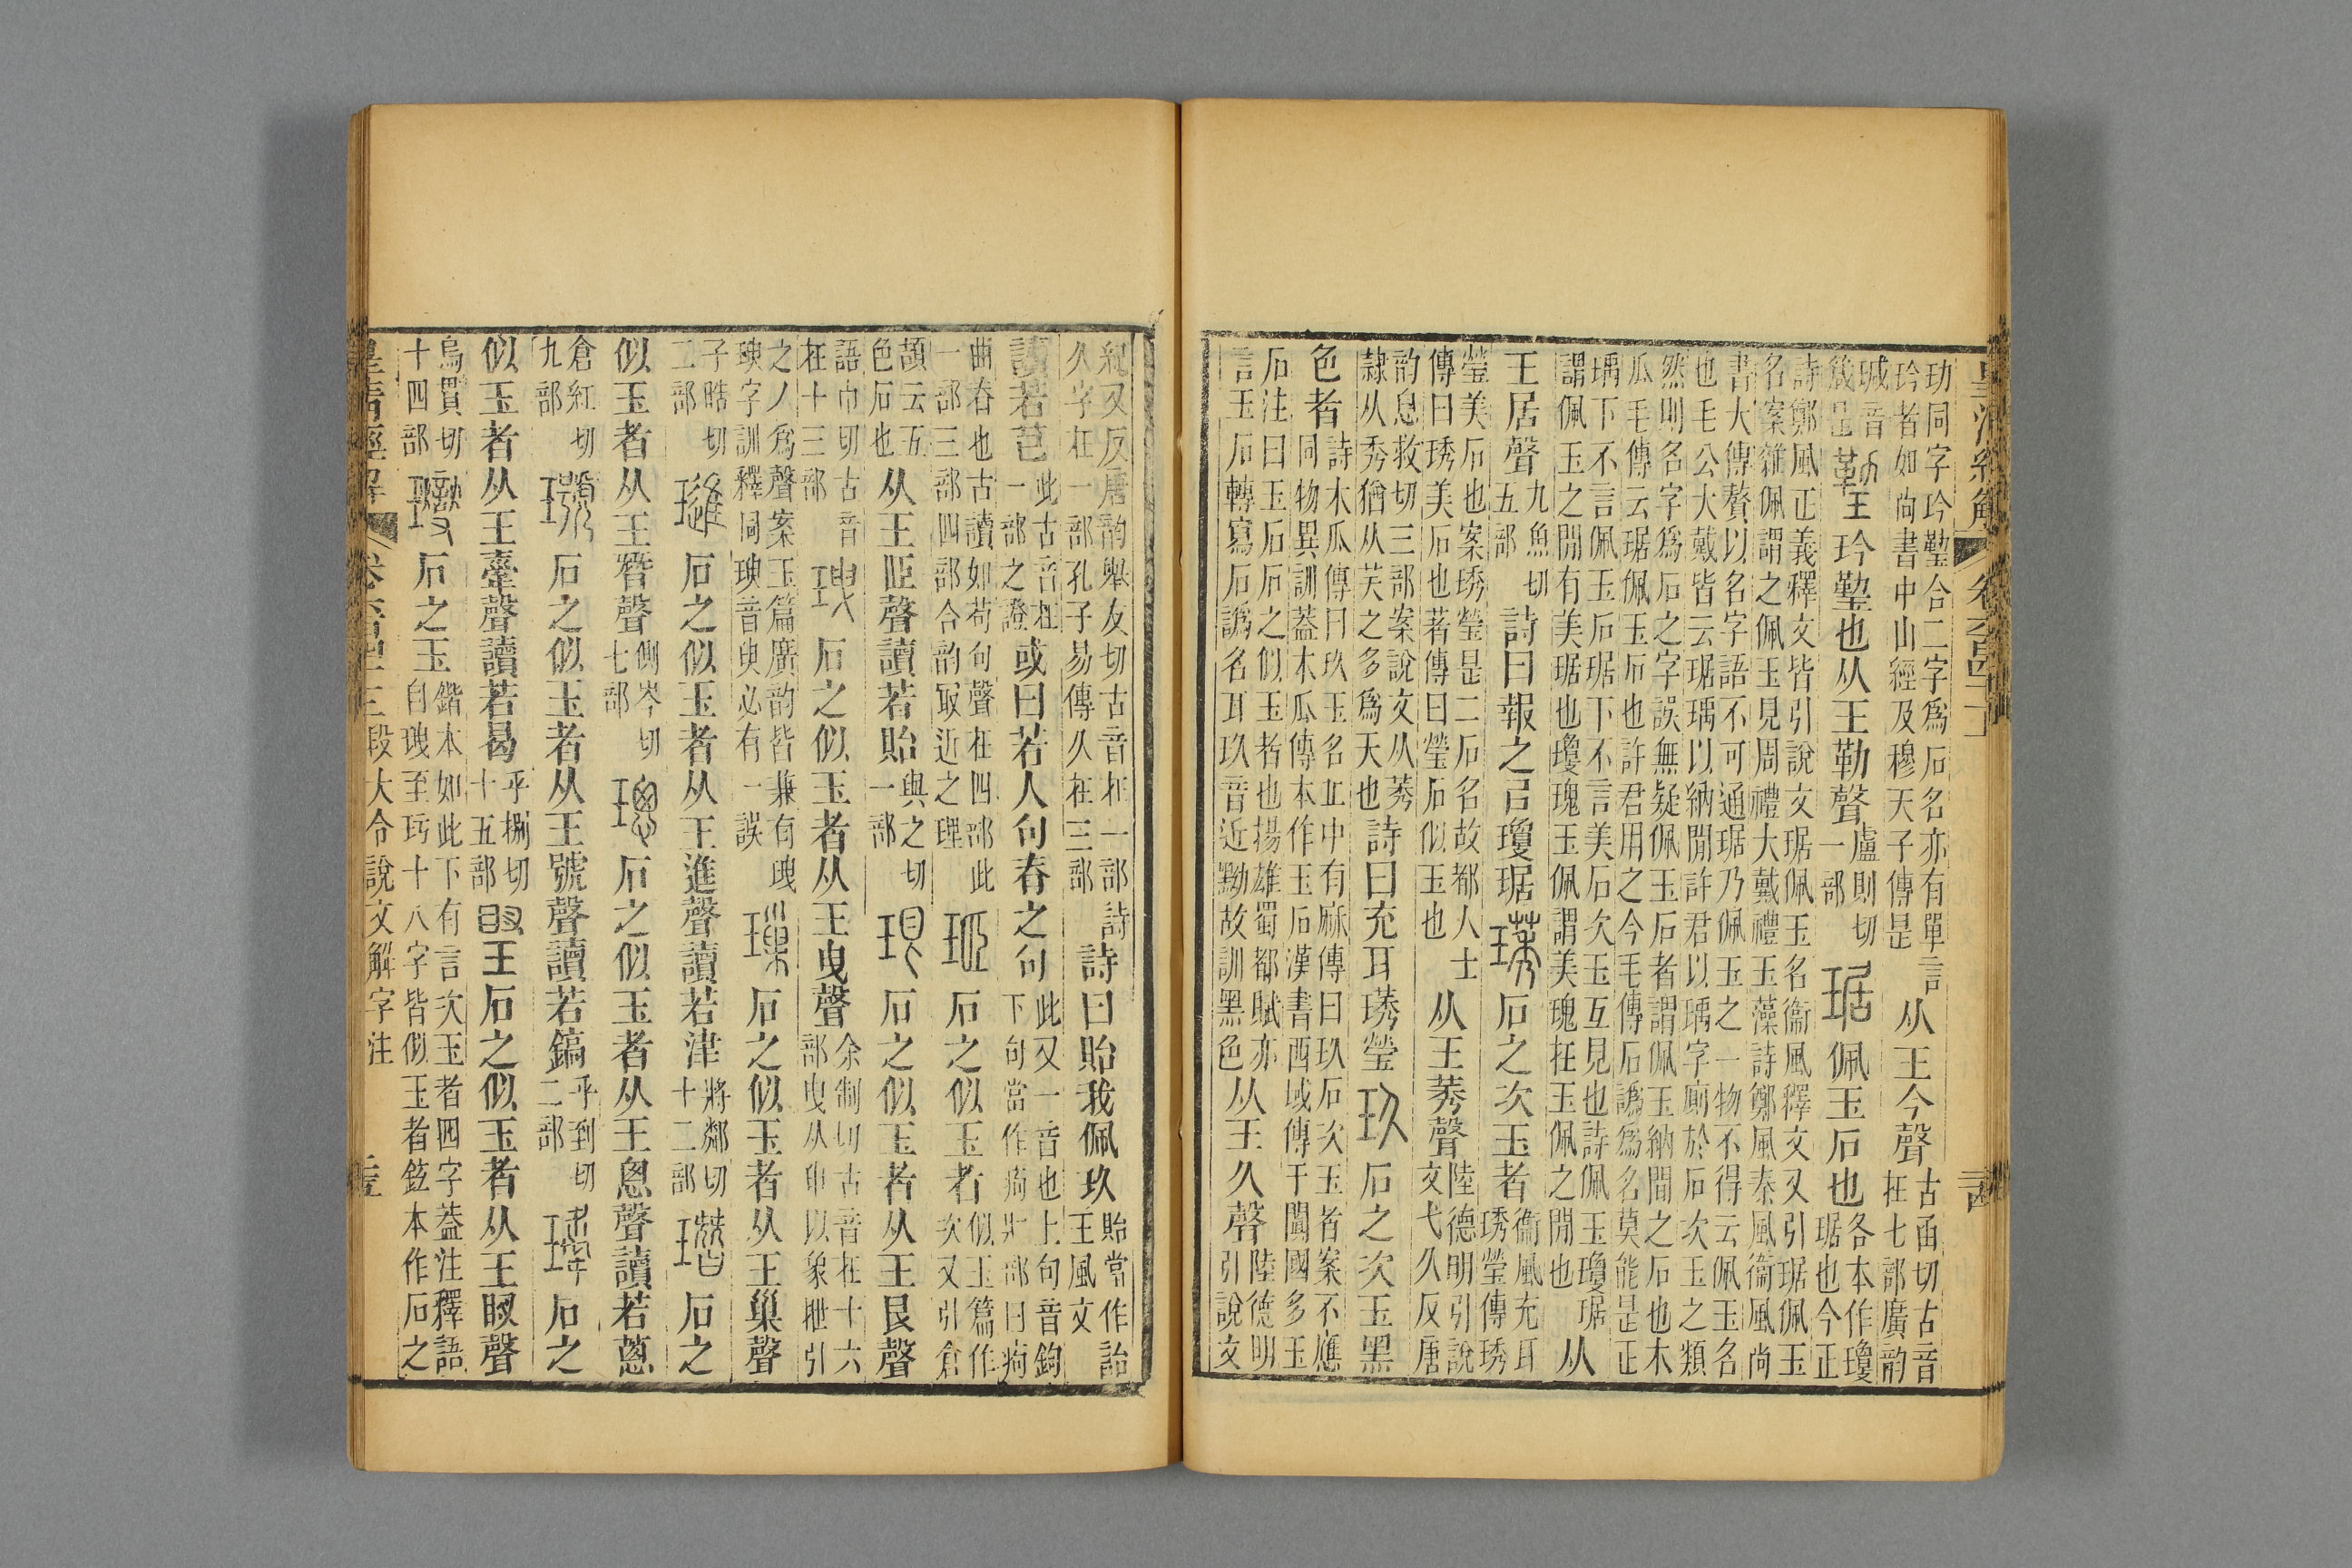 皇清經解 卷六百四十一
玏同字玪𤨙合二字爲石名亦有單言玪者如尙書中山經及穆天子傳是从王今聲古函切古音在七部廣韵
瑊音箴是𤨙玪𤨙也从王勒聲盧則切一部琚佩玉石也各本作瓊琚也今正
詩鄭風正義釋文皆引說文琚佩玉名衞風釋文又引琚佩玉名案雜佩謂之佩玉見周禮大戴禮玉藻詩鄭風秦風衞風尙
書大傳贅以名字語不可通琚乃佩玉之一物不得云佩玉名也毛公大戴皆云琚瑀以納閒許君以瑀字廁於石次玉之類
然則名字爲石之字誤無疑佩玉石者謂佩玉納閒之石也木瓜毛傳云琚佩玉石也許君用之今毛傳石譌爲名莫能是正
瑀下不言佩玉石琚下不言美石次玉互見也詩佩玉瓊琚謂佩玉之閒有美琚也瓊瑰玉佩謂美瑰在玉佩之閒也从
王居聲九魚切五部詩曰報之㠯瓊琚璓石之次玉者衞風充耳琇瑩傳琇
瑩美石也案琇瑩是二石名故都人士傳曰琇美石也著傳曰瑩石似玉也从王莠聲陸德明引說文弋久反唐
韵息救切三部案說文从莠隷从秀猶从芺之多爲天也詩曰充耳璓瑩玖石之次玉黑
色者詩木瓜傳曰玖玉名丘中有麻傳曰玖石次玉者案不應同物異訓葢木瓜傳本作玉石漢書西域傳于闐國多玉
石注曰玉石石之似玉者也揚雄蜀都賦亦言玉石轉寫石譌名耳玖音近黝故訓黑色从王久聲陸德明引說文
紀又反唐韵舉友切古音在一部詩久字在一部孔子易傳久在三部詩曰貽我佩玖貽當作詒王風文
讀若芑此古音在一部之證或曰若人句脊之句此又一音也上句音鉤下句當作痀疒部曰痀
曲脊也古讀如苟句聲在四部此一部三部四部合韵取近之理㺿石之似玉者似玉篇作次又引倉
頡云五色石也从王𦣞聲讀若貽與之切一部珢石之似玉者从王艮聲
語巾切古音在十三部㻎石之似玉者从王曳聲余制切古音在十六部曳从申以象抴引
之丿爲聲案玉篇廣韵皆兼有㻎𤧙字訓釋同𤧙音臾必有一誤璅石之似玉者从王巢聲
子晧切二部璡石之似玉者从王進聲讀若津將鄰切十二部㻸石之
似玉者从王朁聲側岑切七部璁石之似玉者从王悤聲讀若蔥
倉紅切九部㙱石之似玉者从王號聲讀若鎬乎到切二部瓘石之
似玉者从王舝聲讀若曷乎捌切十五部䀝石之似玉者从王𥄎聲
烏貫切十四部石之玉鍇本如此下有言次玉者四字葢注釋語自㻎至玗十八字皆似玉者鉉本作石之
皇清經解 卷六百四十一 段大令說文解字注